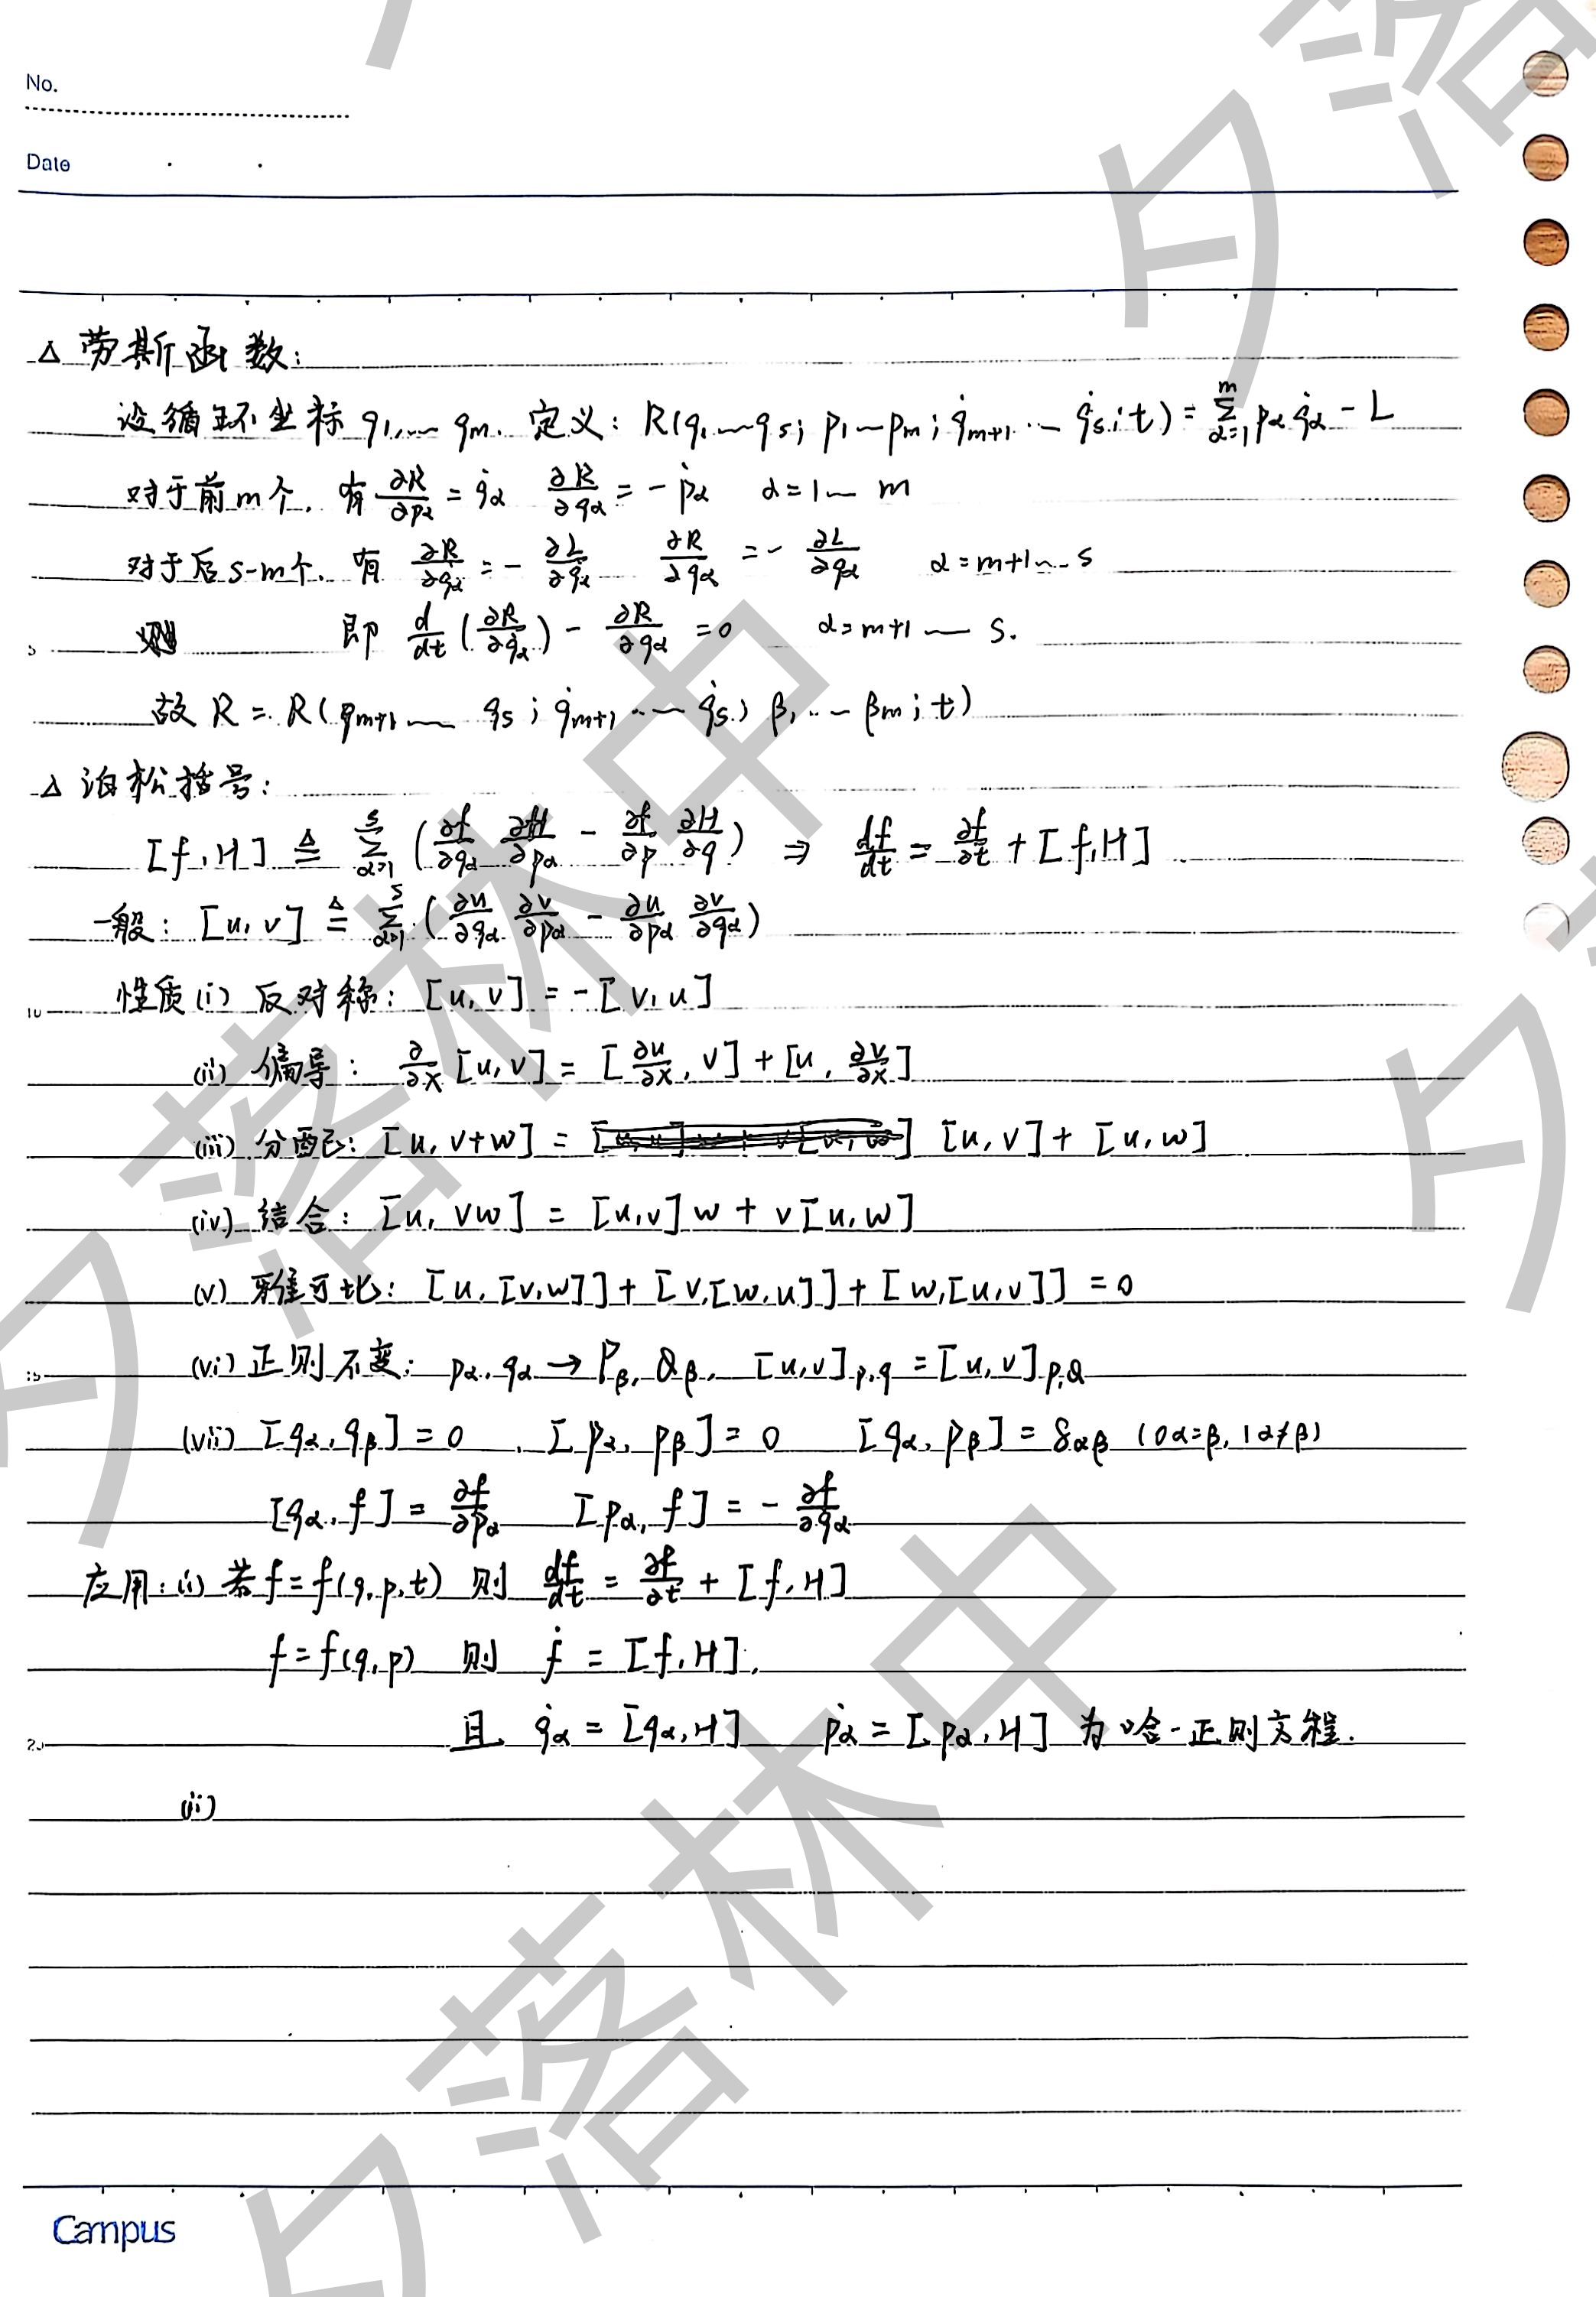 No.
Date
△ 劳斯函数:
设循环坐标 q₁,… qₘ. 定义: R(q₁…qₛ; p₁…pₘ; q̇ₘ₊₁ … q̇ₛ; t) = Σ_{α=1}^{m} pα q̇α - L
对于前m个, 有 ∂R/∂pα = q̇α ∂R/∂qα = -ṗα α=1… m
对于后s-m个, 有 ∂R/∂q̇α = - ∂L/∂q̇α ∂R/∂qα = - ∂L/∂qα α=m+1… s
5 即 d/dt (∂R/∂q̇α) - ∂R/∂qα = 0 α=m+1 … s.
故 R = R(qₘ₊₁ … qₛ; q̇ₘ₊₁ … q̇ₛ; β₁ … βₘ; t)
△ 泊松括号:
[f, H] ≜ Σ_{α=1}^{s} (∂f/∂qα ∂H/∂pα - ∂f/∂p ∂H/∂q) ⇒ df/dt = ∂f/∂t + [f, H]
一般: [u, v] ≜ Σ_{α=1}^{s} (∂u/∂qα ∂v/∂pα - ∂u/∂pα ∂v/∂qα)
10 性质 (i) 反对称: [u, v] = -[v, u]
(ii) 偏导: ∂/∂x [u, v] = [∂u/∂x, v] + [u, ∂v/∂x]
(iii) 分配: [u, v+w] = [u, v] + [u, w]
(iv) 结合: [u, vw] = [u, v] w + v[u, w]
(v) 雅可比: [u, [v, w]] + [v, [w, u]] + [w, [u, v]] = 0
15 (vi) 正则不变: pα, qα → Pβ, Qβ, [u, v]p,q = [u, v]P,Q
(vii) [qα, qβ] = 0 , [pα, pβ] = 0 [qα, pβ] = δαβ (0 α=β, 1 α≠β)
[qα, f] = ∂f/∂pα [pα, f] = - ∂f/∂qα
应用: (i) 若 f = f(q, p, t) 则 df/dt = ∂f/∂t + [f, H]
f = f(q, p) 则 ḟ = [f, H],
20 且 q̇α = [qα, H] ṗα = [pα, H] 为哈-正则方程.
(ii)
Campus
夕落林中
夕落林中
夕落
夕落